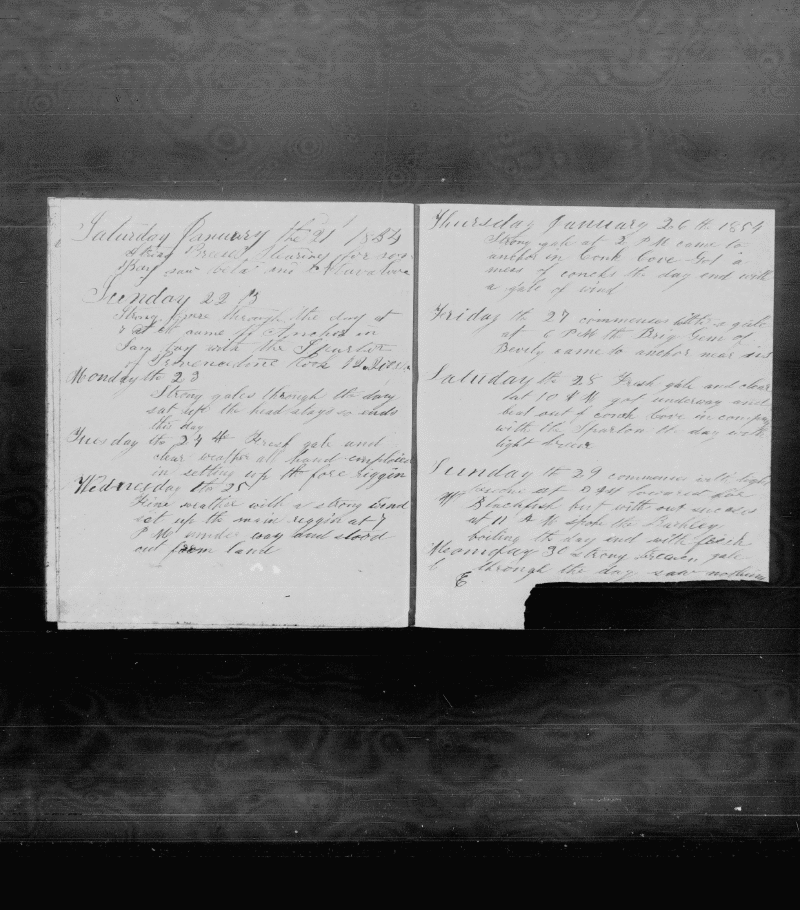 Saturday January the 21st 1854
Strong Breeze Stearing for
Bay saw
Sunday 22
Strong through the day at
came to Anchor in
bay with the Spartin
of
Monday the 23
Strong gales through the day
sat up the head stays so ends
this day
Tuesday the 24th Fresh gale and
clear weather all hand employed
in setting up th fore riggin
Wednesday the 25
Fine weather with a strong wind
set up the main riggin at 7
P M under way and stood
out from land
Thursday January 26th 1854
Strong gale at 2 P M came to
anchor in Conk Cove Got a
mess of concks the day end with
a gale of wind
Friday the 27 commences with a gale
at 6 P M th Brig Gem of
Bevily came to anchor near
Saturday the 28 Fresh gale and clear
at 10 A M got underway and
beat out of conck Cove in
with the Spartan the day with
light breese
Sunday th 29 commences with light
at lowered
Blackfish but with out success
at 11 A M spok the
boiling the day end with
30 strong breeses gale
through the day saw nothing